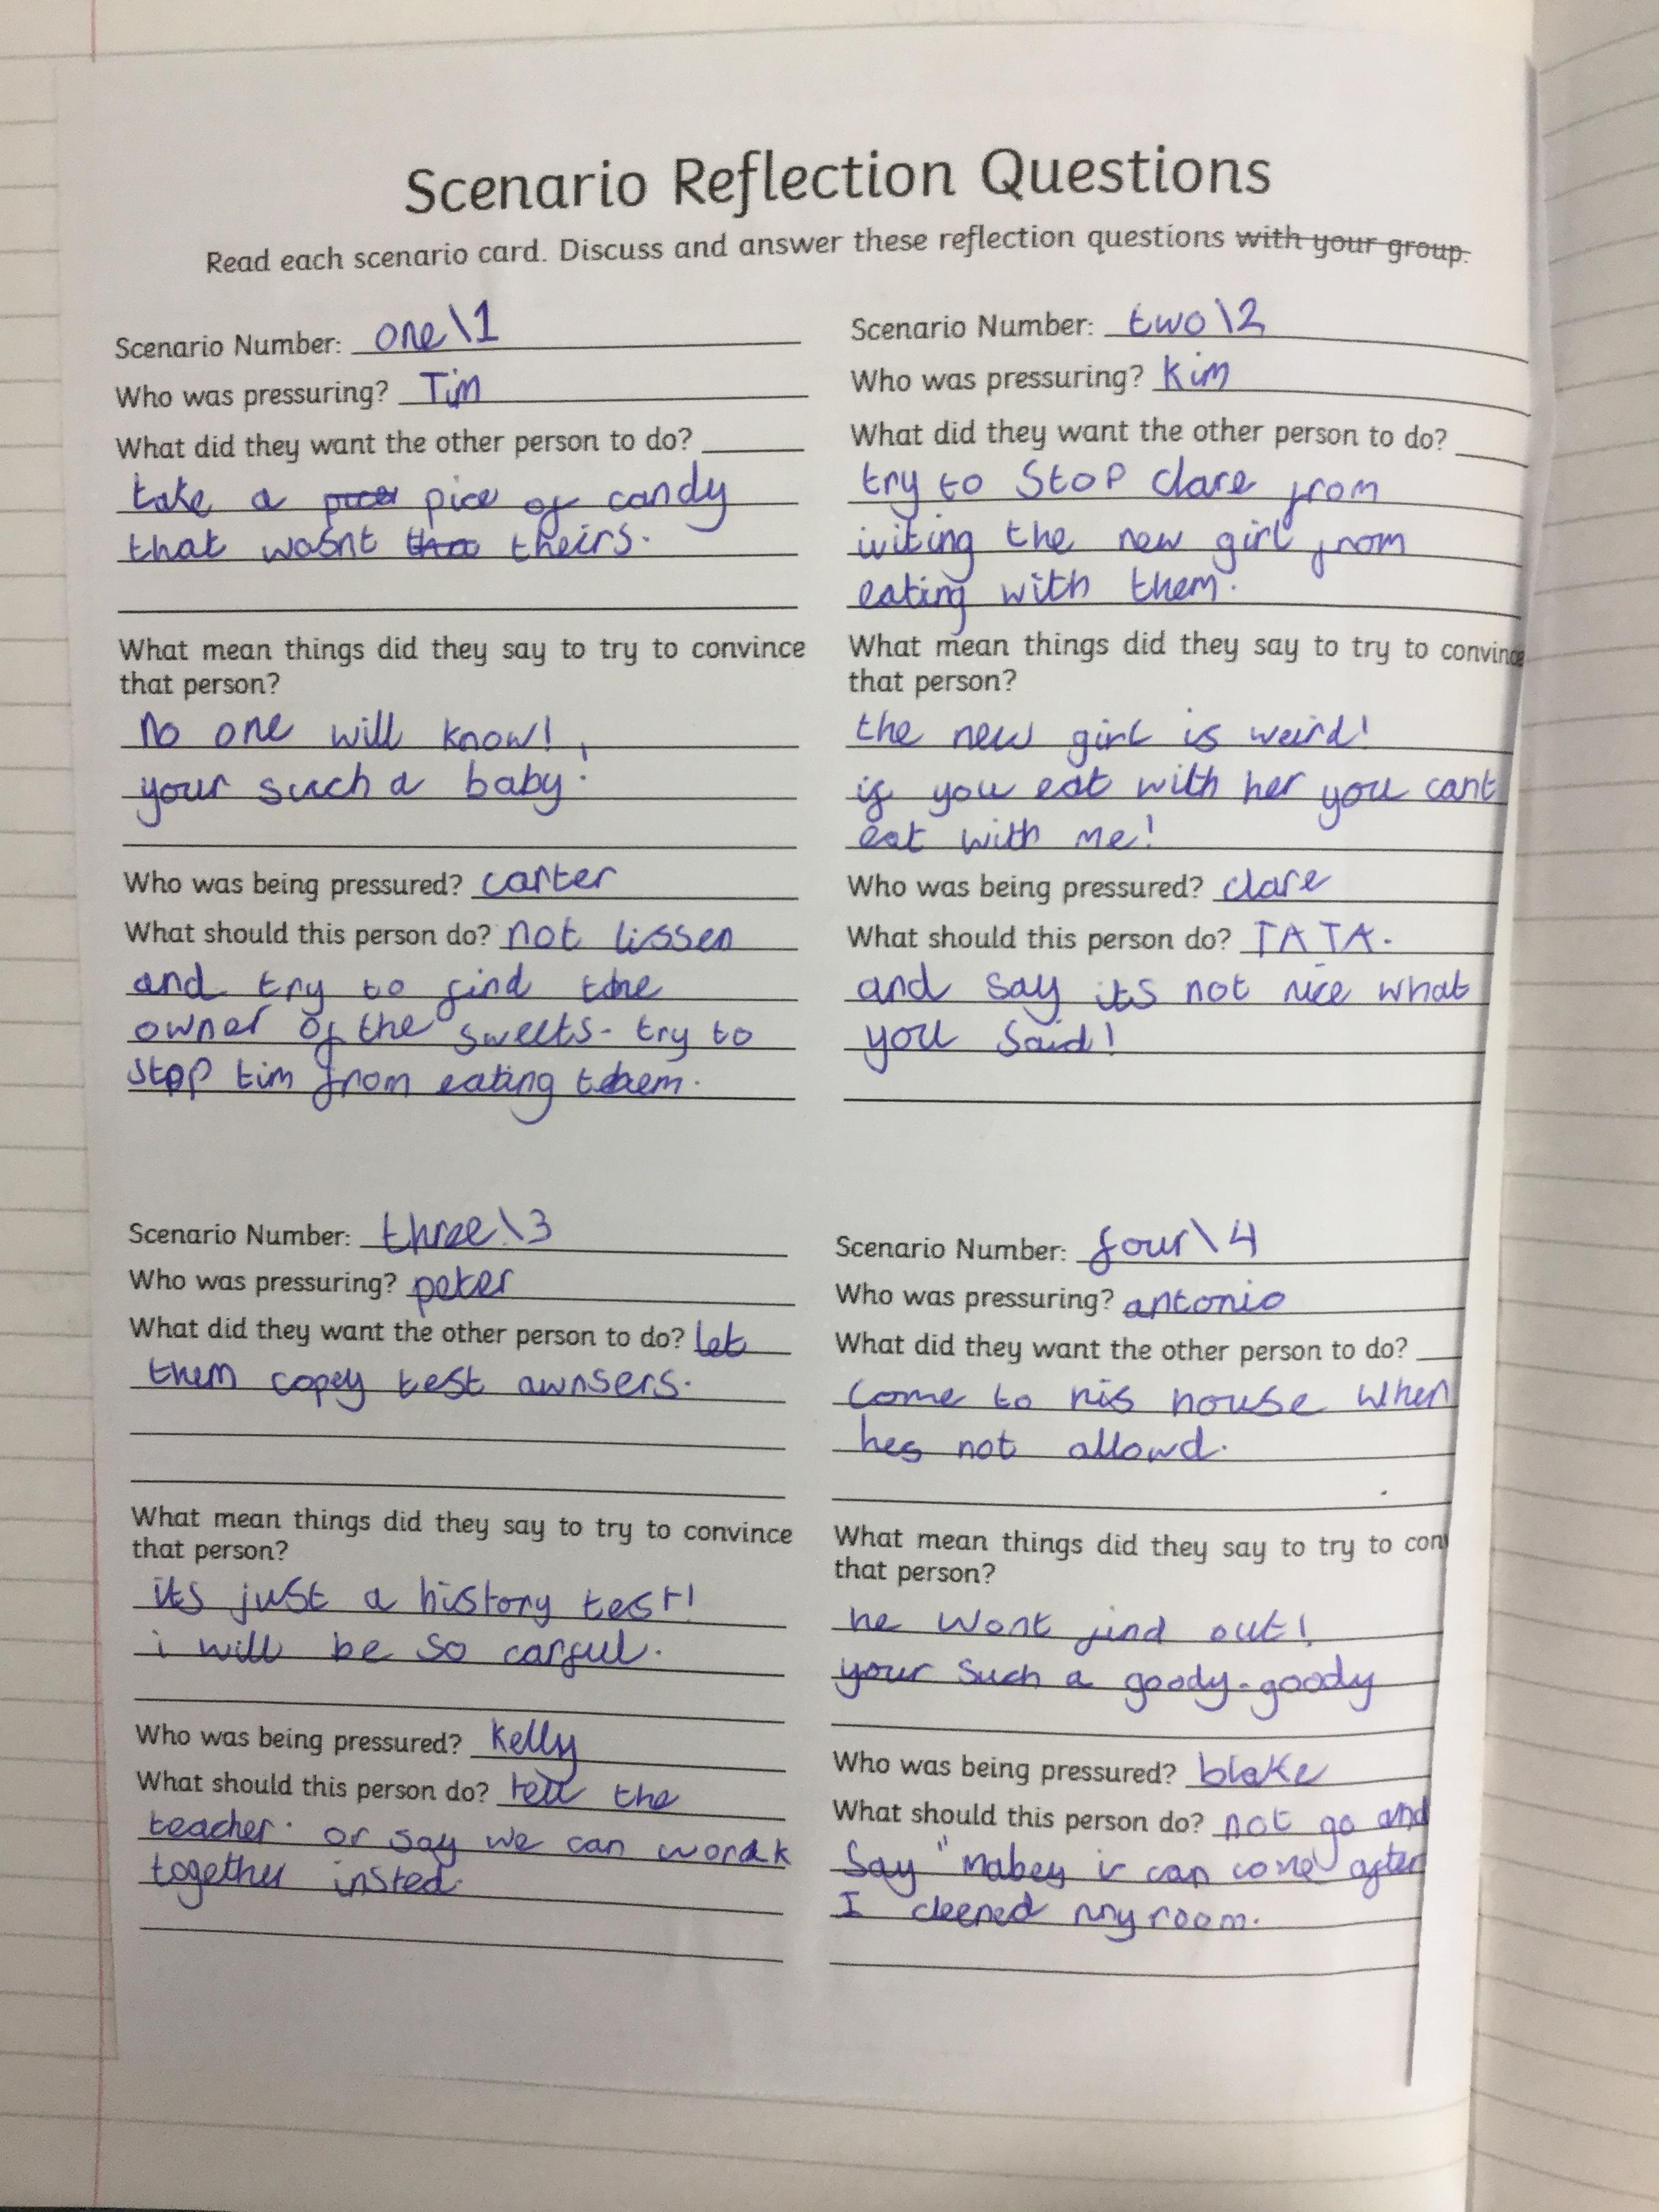 Scenario Reflection Questions
Read each scenario card. Discuss and answer these reflection questions with your group.
Scenario Number: one\1
Who was pressuring? Tim
What did they want the other person to do?
take a pice of candy
that wasnt theirs.
What mean things did they say to try to convince
that person?
No one will know!
your such a baby!
Who was being pressured? carter
What should this person do? not lissen
and try to find the
owner of the sweets. try to
stop tim from eating them.
Scenario Number: two\2
Who was pressuring? Kim
What did they want the other person to do?
try to Stop clare from
iviting the new girl from
eating with them.
What mean things did they say to try to convince
that person?
the new girl is weird!
if you eat with her you cant
eat with me!
Who was being pressured? clare
What should this person do? TATA.
and say its not nice what
you said!
Scenario Number: three\3
Who was pressuring? peter
What did they want the other person to do? let
them copey test awnsers.
What mean things did they say to try to convince
that person?
its just a history test!
i will be so carful.
Who was being pressured? Kelly
What should this person do? tell the
teacher. or say we can work
together insted.
Scenario Number: four\4
Who was pressuring? antonio
What did they want the other person to do?
come to his house when
hes not allowd.
What mean things did they say to try to con
that person?
he wont find out!
your such a goody-goody
Who was being pressured? blake
What should this person do? not go and
Say "mabey i can come" after
I cleened my room.